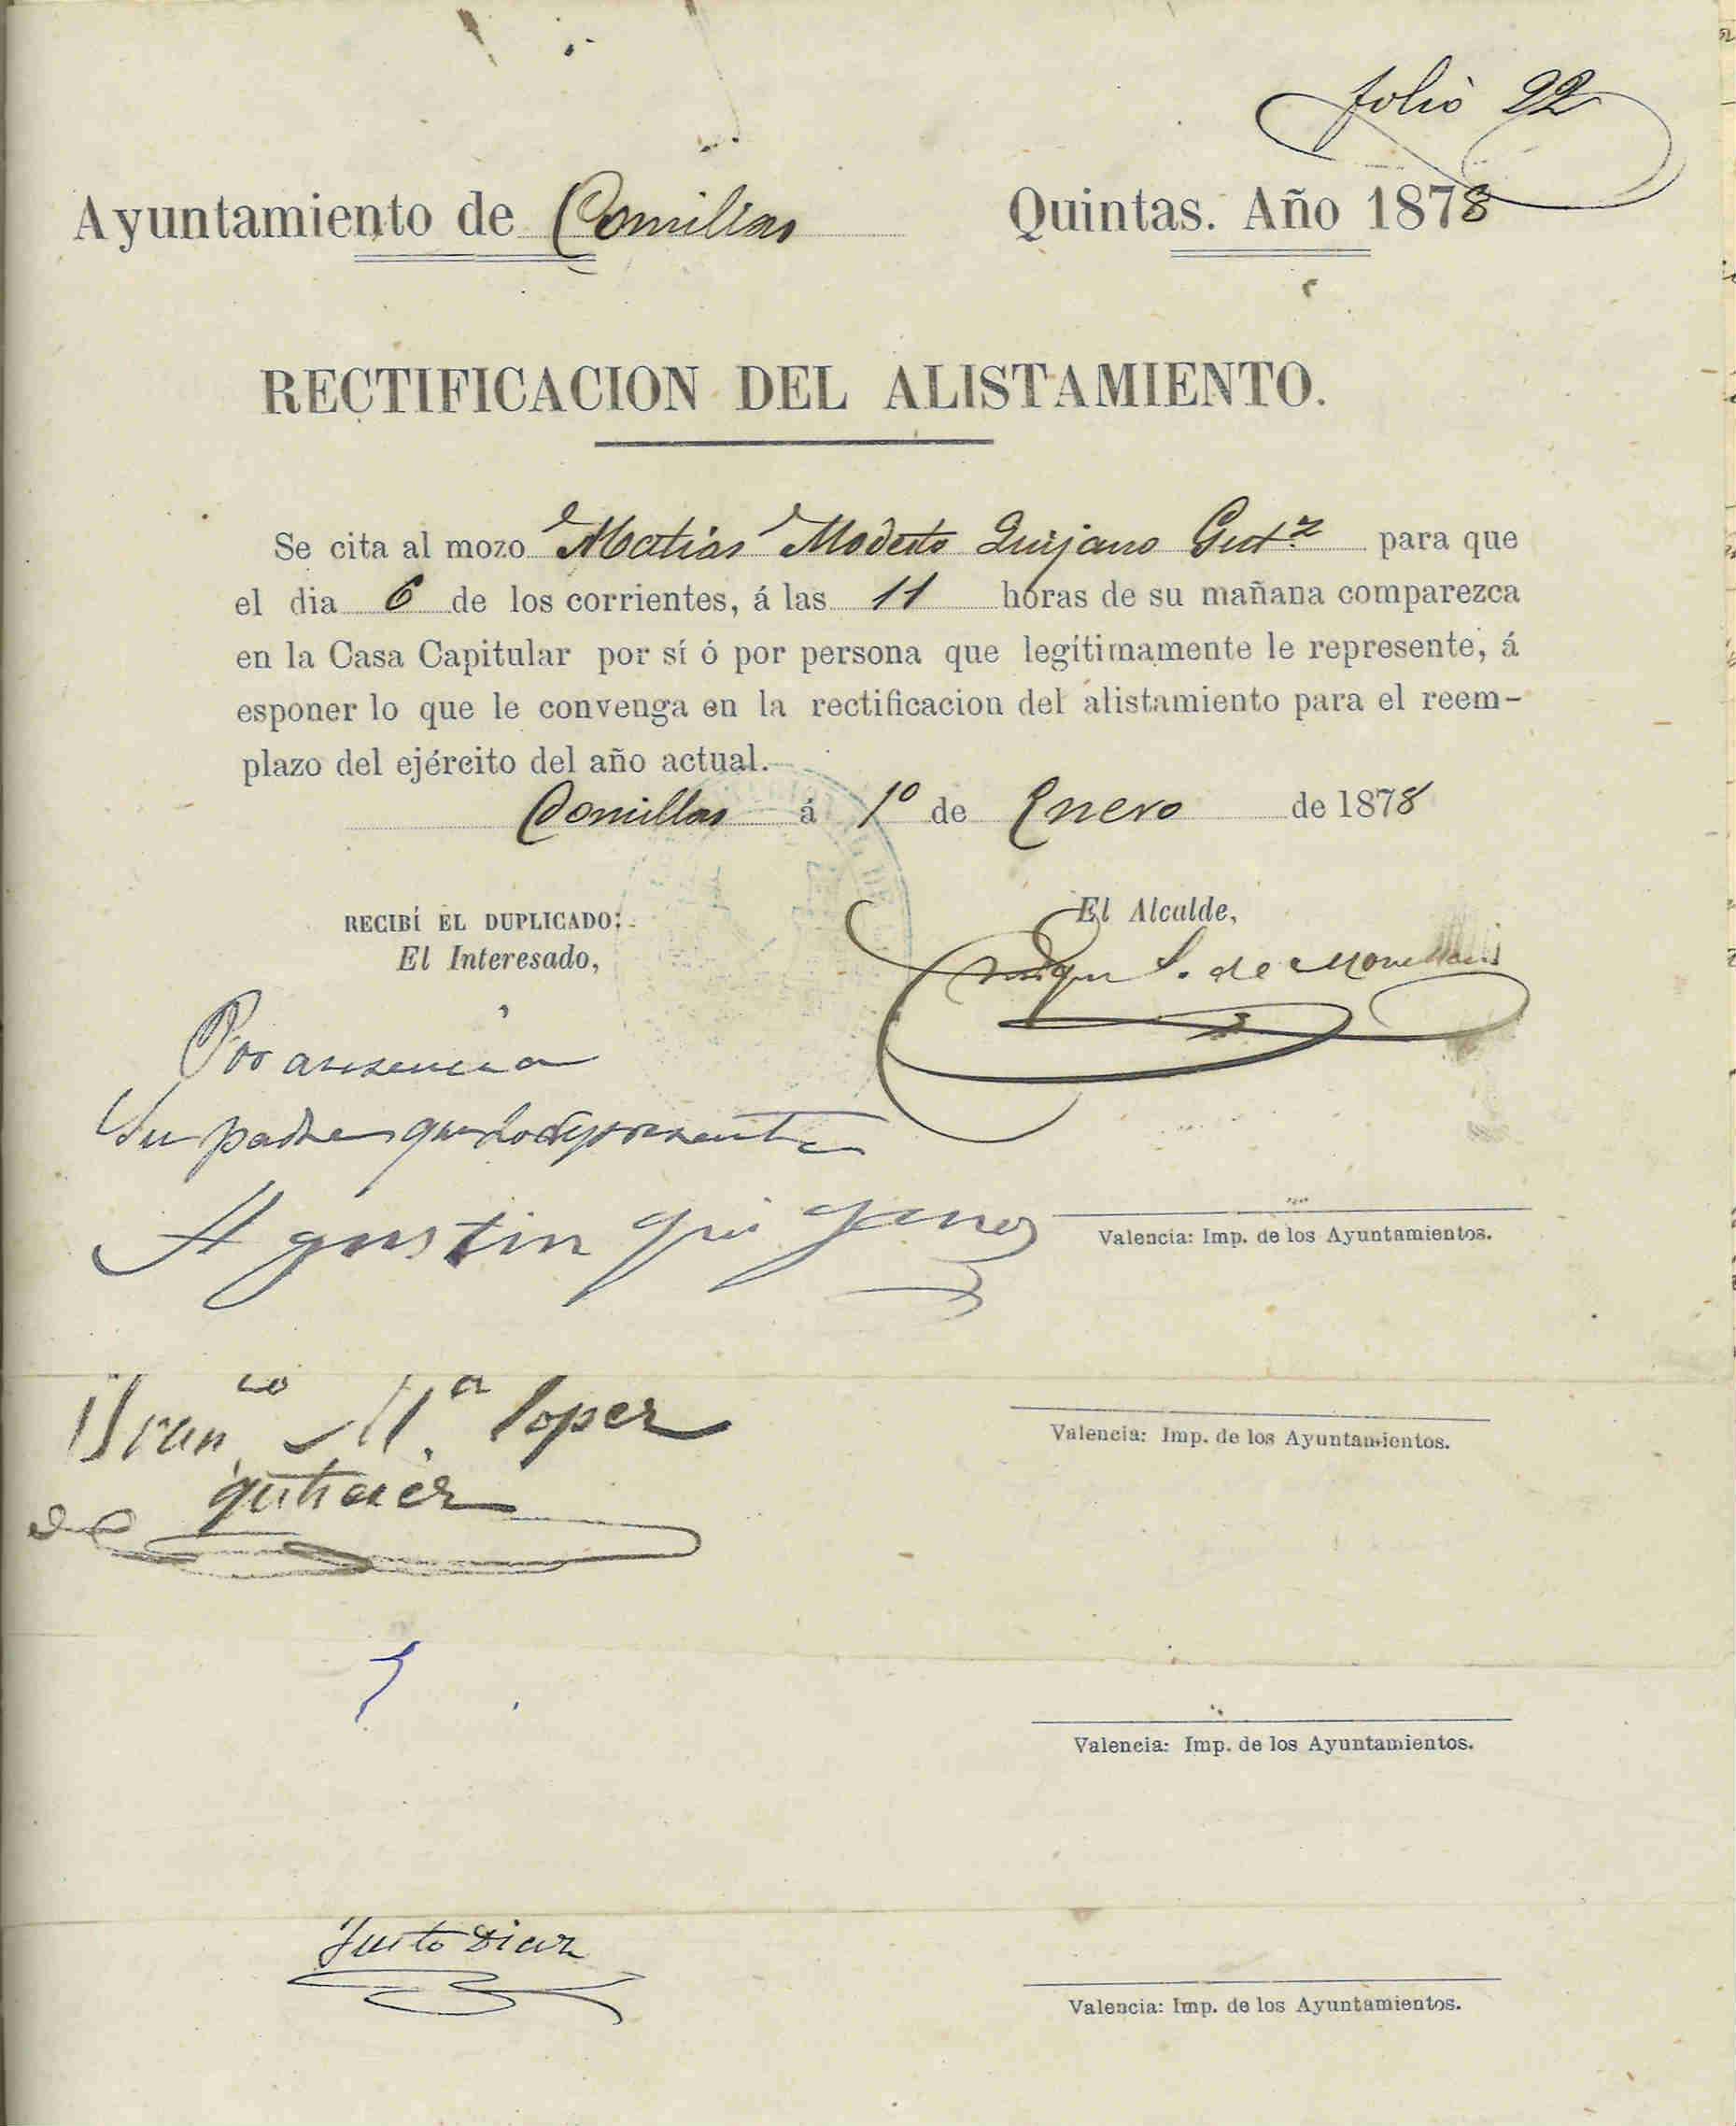 folio 22
Ayuntamiento de Comillas
Quintas. Año 1878
RECTIFICACION DEL ALISTAMIENTO.
Se cita al mozo Matias Modesto Quijano Gutz para que
el dia 6 de los corrientes, á las 11 horas de su mañana comparezca
en la Casa Capitular por sí ó por persona que legítimamente le represente, á
esponer lo que le convenga en la rectificacion del alistamiento para el reem-
plazo del ejército del año actual.
Comillas á 1º de Enero de 1878
RECIBÍ EL DUPLICADO:
El Interesado,
El Alcalde,
S. de
Por ausencia
Su padre
Agustin quigano
Valencia: Imp. de los Ayuntamientos.
Franco Mª lopez
gutierez
Valencia: Imp. de los Ayuntamientos.
Valencia: Imp. de los Ayuntamientos.
Justo Diaz
Valencia: Imp. de los Ayuntamientos.